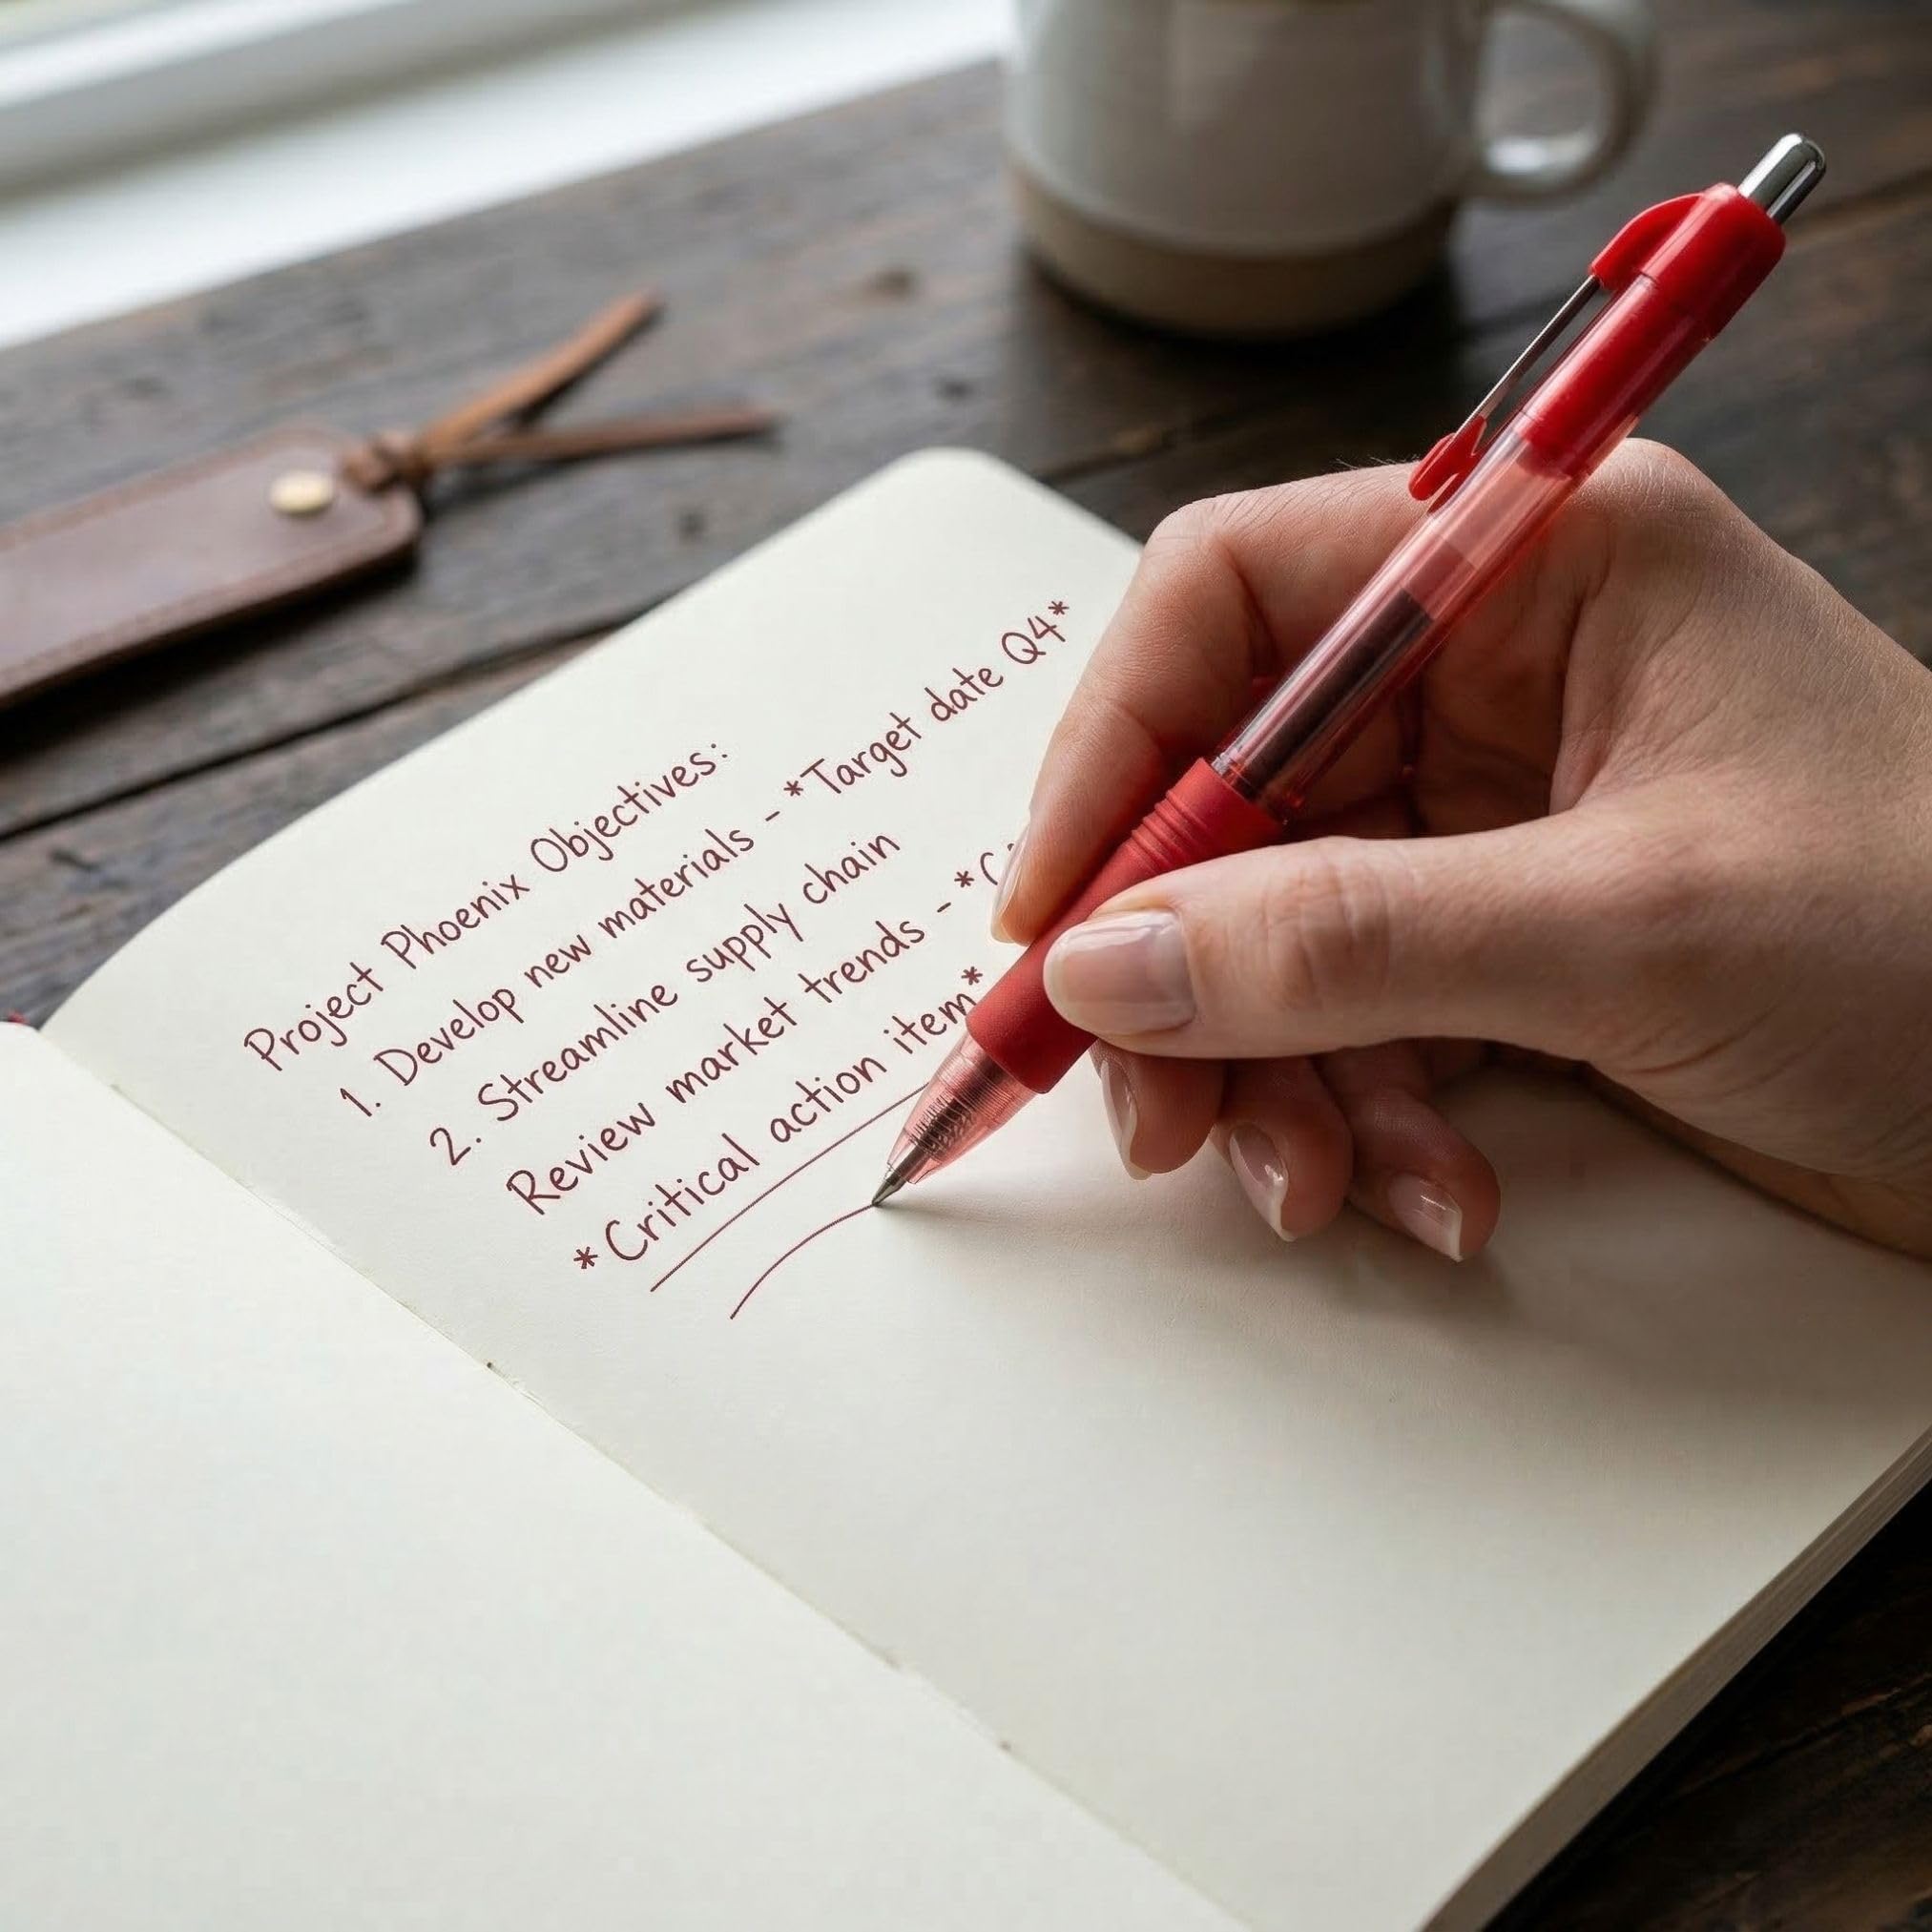 Project Phoenix Objectives:
1. Develop new materials - *Target date Q4*
2. Streamline supply chain
Review market trends - *
*Critical action item*